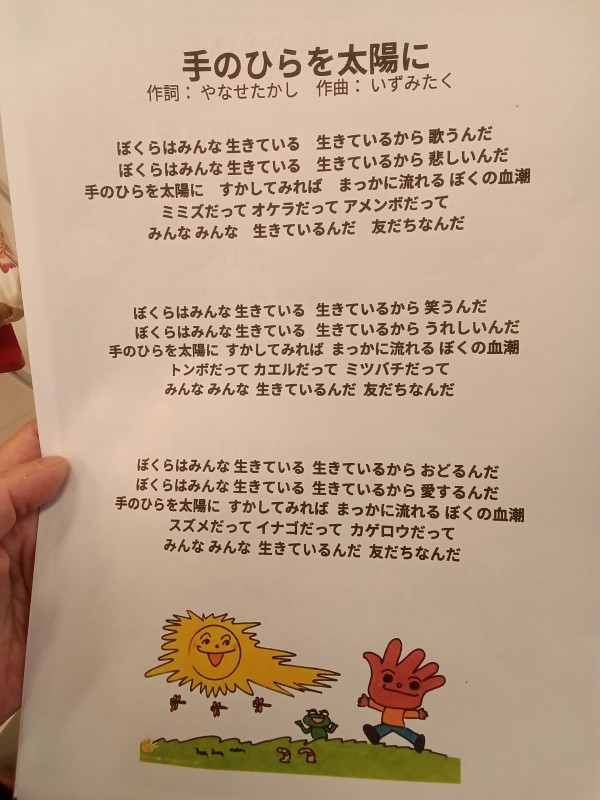 手のひらを太陽に
作詞： やなせたかし　作曲： いずみたく
ぼくらはみんな 生きている　生きているから 歌うんだ
ぼくらはみんな 生きている　生きているから 悲しいんだ
手のひらを太陽に　すかしてみれば　まっかに流れる ぼくの血潮
ミミズだって オケラだって アメンボだって
みんな みんな　生きているんだ　友だちなんだ
ぼくらはみんな 生きている 生きているから 笑うんだ
ぼくらはみんな 生きている 生きているから うれしいんだ
手のひらを太陽に すかしてみれば まっかに流れる ぼくの血潮
トンボだって カエルだって ミツバチだって
みんな みんな 生きているんだ 友だちなんだ
ぼくらはみんな 生きている 生きているから おどるんだ
ぼくらはみんな 生きている 生きているから 愛するんだ
手のひらを太陽に すかしてみれば まっかに流れる ぼくの血潮
スズメだって イナゴだって カゲロウだって
みんな みんな 生きているんだ 友だちなんだ